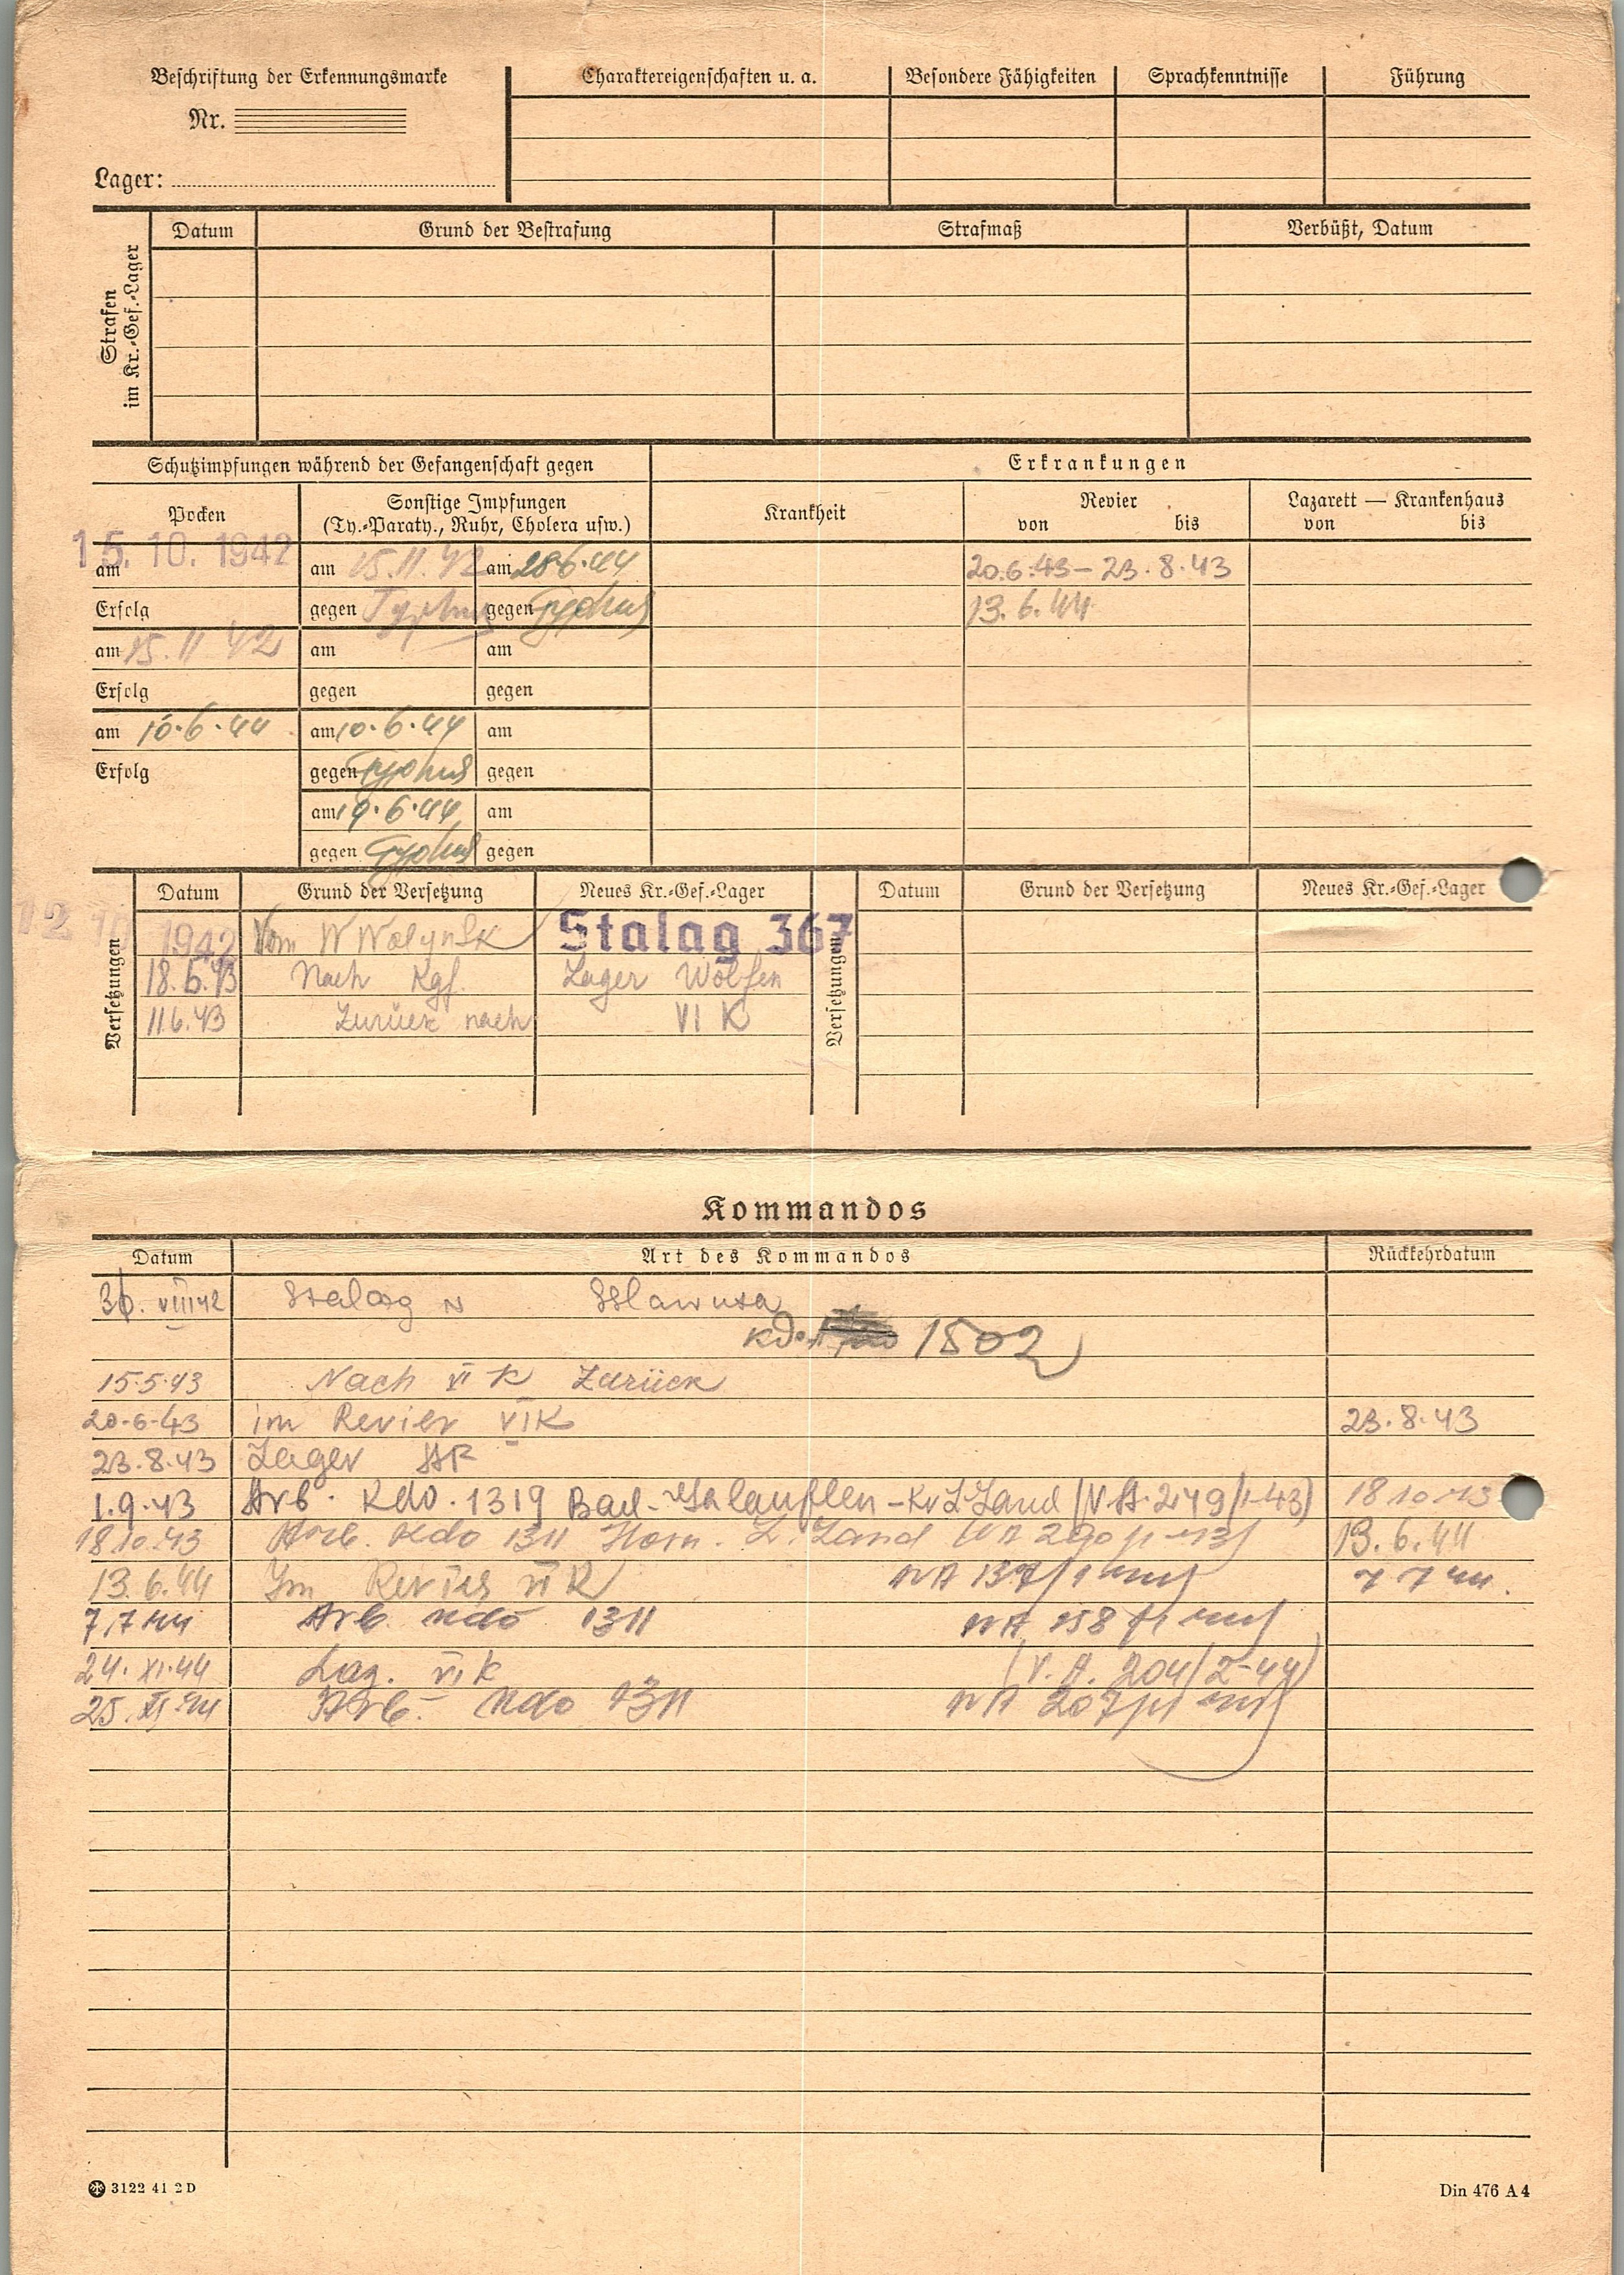 Beschriftung der Erkennungsmarke
Nr.
Lager:
Charaktereigenschaften u. a.
Besondere Fähigkeiten
Sprachkenntnisse
Führung
Strafen
im Kr.-Gef.-Lager
Datum
Grund der Bestrafung
Strafmaß
Verbüßt, Datum
Schutzimpfungen während der Gefangenschaft gegen
Erkrankungen
Pocken
Sonstige Impfungen
(Ty.-Paraty., Ruhr, Cholera usw.)
Krankheit
Revier
von bis
Lazarett — Krankenhaus
von bis
15. 10. 1942
am
am 15.11.42
am 28.6.44
20.6.43 – 23.8.43
Erfolg
gegen Typhus
gegen Typhus
13.6.44
am 15.11 42
am
am
Erfolg
gegen
gegen
am 10.6.44
am 10.6.44
am
Erfolg
gegen Typhus
gegen
am 19.6.44
am
gegen Typhus
gegen
Versetzungen
Datum
Grund der Versetzung
Neues Kr.-Gef.-Lager
Versetzungen
Datum
Grund der Versetzung
Neues Kr.-Gef.-Lager
12 10 1942 Vom W Wolynsk Stalag 367
Nach Kgf. Lager Wolfen
11.6.43 Zurück nach VI K
Kommandos
Datum
Art des Kommandos
Rückkehrdatum
VIII 42 Stalag
Kdo. 1502
15.5.43 Nach VI K Zurück
20.6.43 im Revier VI K 23.8.43
23.8.43 Lager
1.9.43 Arb. Kdo. 1319 Bad- (V.A. 249/1-43) 18 10 43
18.10.43 Arb. Kdo 1311 Horn. L. Land 13.6.44
13.6.44 Im Revier VI K VA 137/1 7 7 44.
7.7 44 Arb. Kdo 1311 VA 158
24. XI. 44 Laz. VI K (V. A. 204/I-44)
25. XI 44 Arb.- Kdo 1311 VA 207
3122 41 2 D
Din 476 A 4